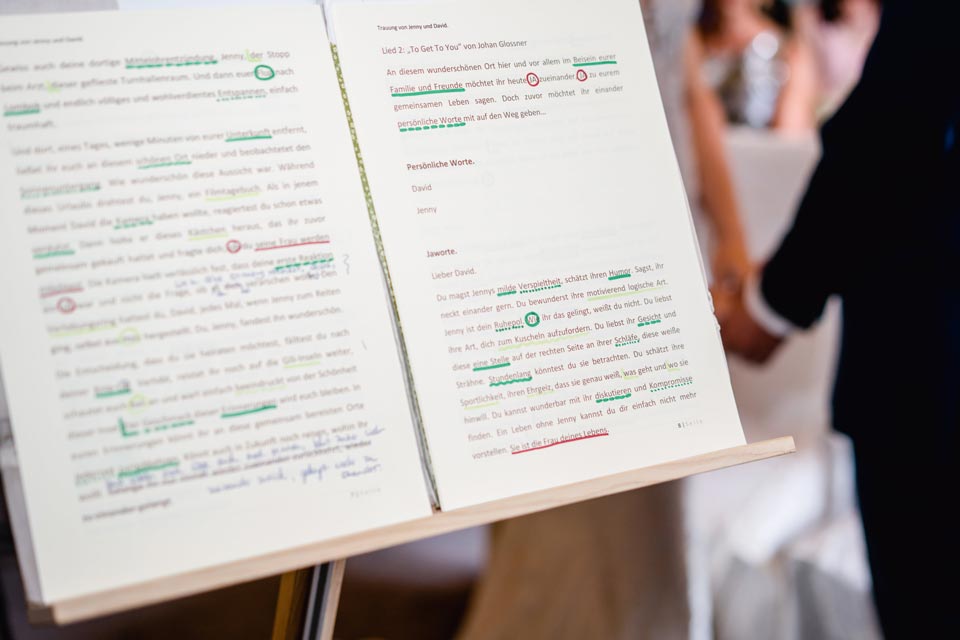 Trauung von Jenny und David.
Gewiss auch deine dortige Mittelohrentzündung Jenny, der Stopp
beim Arzt, dieser geflieste Turnhallenraum. Und dann euer Flug nach
Lombok und endlich völliges und wohlverdientes Entspannen, einfach
traumhaft.
Und dort, eines Tages, wenige Minuten von eurer Unterkunft entfernt,
ließet ihr euch an diesem schönen Ort nieder und beobachtetet den
Sonnenuntergang. Wie wunderschön diese Aussicht war. Während
dieses Urlaubs drehtest du, Jenny, ein Filmtagebuch. Als in jenem
Moment David die Kamera haben wollte, reagiertest du schon etwas
verdutzt. Dann holte er dieses Kästchen heraus, das ihr zuvor
gemeinsam gekauft hattet und fragte dich, ob du seine Frau werden
Die Kamera hielt verlässlich fest, dass deine erste Reaktion
war und nicht die Frage, ob er dich veräppeln wolle. Den
Verlobungsring hattest du, David, jedes Mal, wenn Jenny zum Reiten
ging, selbst hergestellt. Du, Jenny, fandest ihn wunderschön.
Die Entscheidung, dass du sie heiraten möchtest, fälltest du nach
deiner Verliebt, reistet ihr noch auf die Gili-Inseln weiter,
erfreutet euch und wart einfach beeindruckt von der Schönheit
dieser Insel. dieser Erinnerungen wird euch bleiben. In
euren Erinnerungen könnt ihr an diese gemeinsam bereisten Orte
jederzeit Könnt auch in Zukunft noch reisen, wohin ihr
zueinander
zueinander gelangt.
7 | Seite
Trauung von Jenny und David.
Lied 2: „To Get To You" von Johan Glossner
An diesem wunderschönen Ort hier und vor allem im Beisein eurer
Familie und Freunde möchtet ihr heute JA zueinander, JA zu eurem
gemeinsamen Leben sagen. Doch zuvor möchtet ihr einander
persönliche Worte mit auf den Weg geben...
Persönliche Worte.
David
Jenny
Jaworte.
Lieber David.
Du magst Jennys milde Verspieltheit, schätzt ihren Humor. Sagst, ihr
neckt einander gern. Du bewunderst ihre motivierend logische Art.
Jenny ist dein Ruhepol. Wie ihr das gelingt, weißt du nicht. Du liebst
ihre Art, dich zum Kuscheln aufzufordern. Du liebst ihr Gesicht und
diese eine Stelle auf der rechten Seite an ihrer Schläfe, diese weiße
Strähne. Stundenlang könntest du sie betrachten. Du schätzt ihre
Sportlichkeit, ihren Ehrgeiz, dass sie genau weiß, was geht und wo sie
hinwill. Du kannst wunderbar mit ihr diskutieren und Kompromisse
finden. Ein Leben ohne Jenny kannst du dir einfach nicht mehr
vorstellen. Sie ist die Frau deines Lebens.
8 | Seite